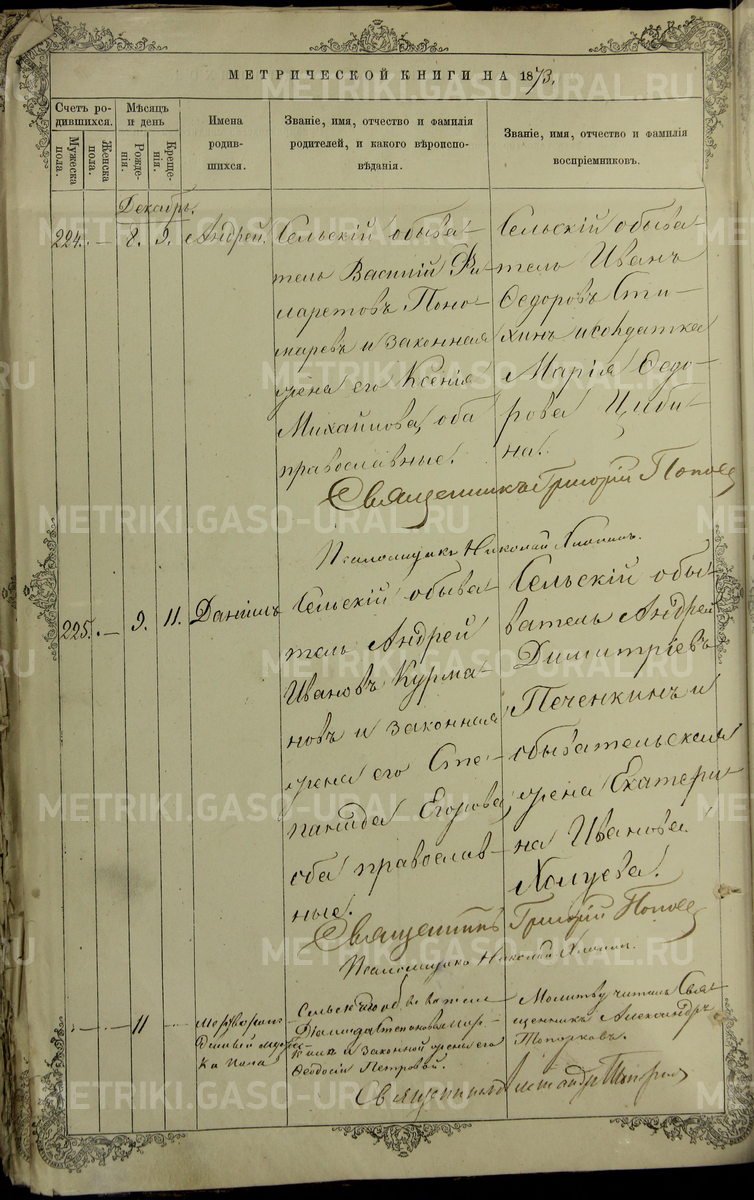 МЕТРИЧЕСКОЙ КНИГИ НА 1873.
Счетъ ро-
дившихся.
Мужеска
пола.
Женска
пола.
Мѣсяцъ
и день
Рожде-
нія.
Креще-
нія.
Имена
родив-
шихся.
Званіе, имя, отчество и фамилія
родителей, и какого вѣроиспо-
вѣданія.
Званіе, имя, отчество и фамилія
воспріемниковъ.
Декабрь.
224. — 8. 9. Андрей.
Сельскій обыва-
тель Василій Фи-
ларетовъ Поно-
маревъ и законная
жена его Ксенія
Михайлова, оба
православные.
Сельскій обыва-
тель Иванъ
Ѳедоровъ Сти-
хинъ и солдатка
Марія Ѳедо-
рова Циби-
на.
Священникъ Григорій Поповъ
Псаломщикъ Николай
225. — 9. 11. Даніилъ
Сельскій обыва-
тель Андрей
Ивановъ Курма-
новъ и законная
жена его Сте-
панида Егорова,
оба православ-
ные.
Сельскій обы-
ватель Андрей
Димитріевъ
Печенкинъ и
обывательская
жена Екатери-
на Иванова
Холуева.
Священникъ Григорій Поповъ
Псаломщикъ Николай
— — 11 —
Мертворож-
денный мужес-
ка пола
Сельскаго обывателя
Степанова
и законной жены его
Ѳеодосіи Петровой.
Молитву читалъ Свя-
щенникъ Александръ
Топорковъ.
Священникъ Александръ Топорковъ
METRIKI.GASO-URAL.RU